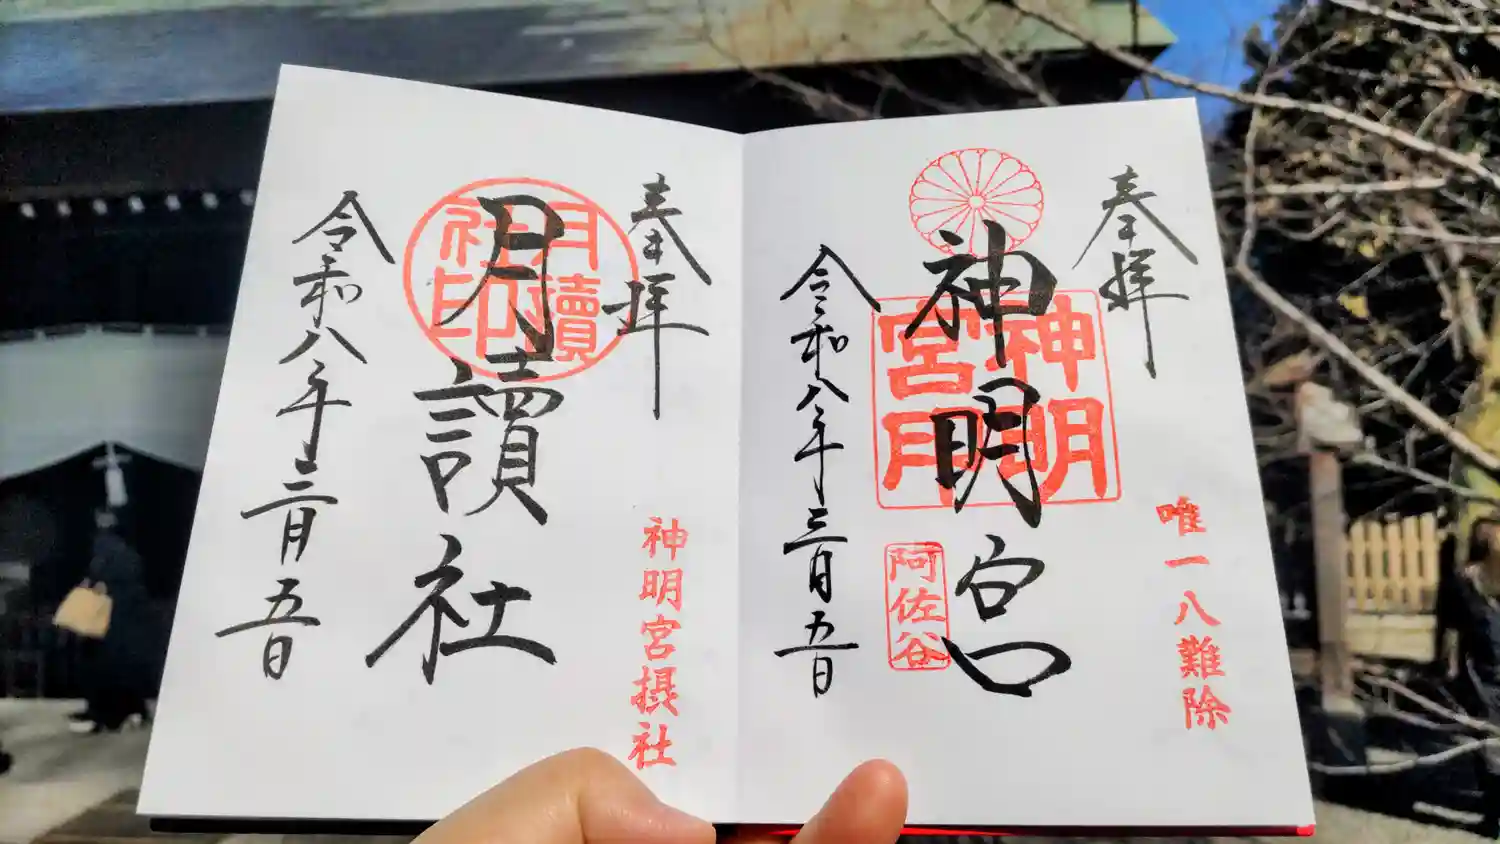 奉拝
唯一八難除
神明宮
神明宮印
阿佐谷
令和八年三月五日
奉拝
神明宮摂社
月讀社
月讀社印
令和八年三月五日